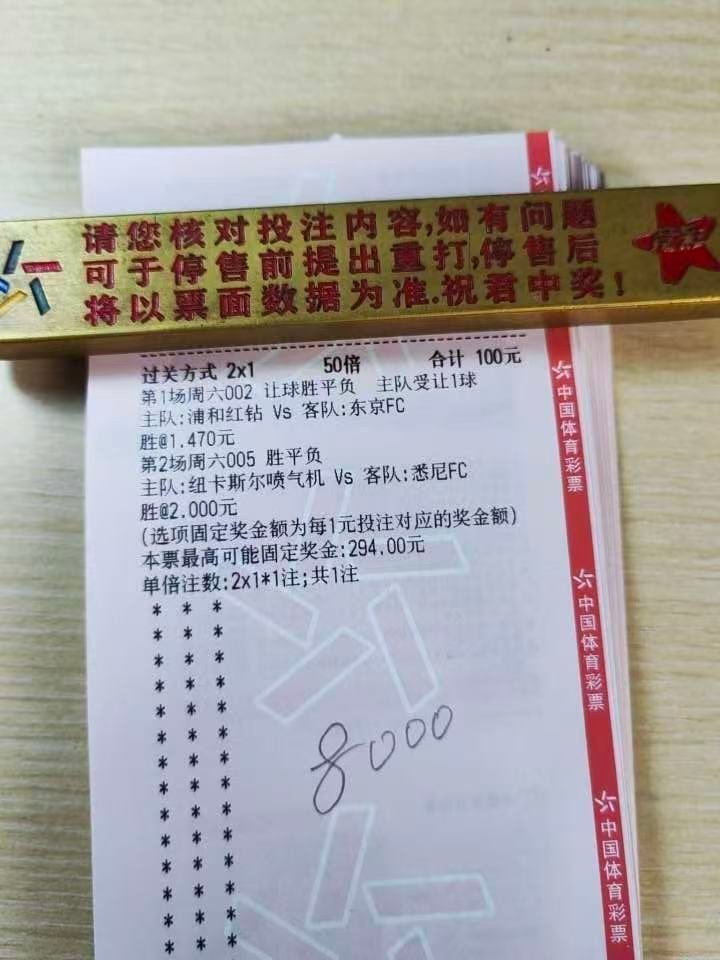 请您核对投注内容,如有问题
可于停售前提出重打,停售后
将以票面数据为准.祝君中奖!
过关方式 2x1 50倍 合计 100元
第1场周六002 让球胜平负 主队受让1球
主队:浦和红钻 Vs 客队:东京FC
胜@1.470元
第2场周六005 胜平负
主队:纽卡斯尔喷气机 Vs 客队:悉尼FC
胜@2.000元
(选项固定奖金额为每1元投注对应的奖金额)
本票最高可能固定奖金:294.00元
单倍注数:2x1*1注;共1注
* * *
* * *
* * *
* * *
* * *
* * *
* * *
* * *
* * *
* * *
* * *
* * *
* * *
* * *
8000
中国体育彩票
中国体育彩票
中国体育彩票